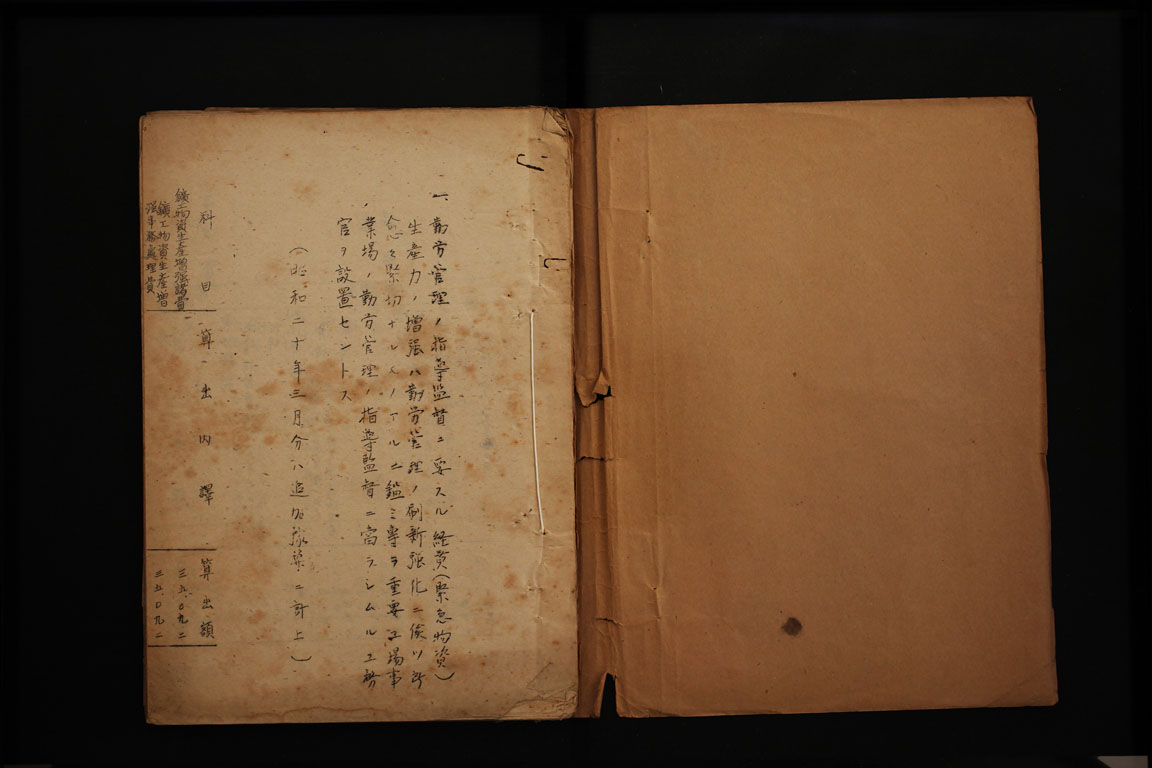 一、勤労管理ノ指導監督ニ要スル経費(緊急物資)
生産力ノ増强ハ勤労管理ノ刷新强化ニ俟ツ所
愈々緊切ナルモノアルニ鑑ミ専ラ重要工場事
業場ノ勤労管理ノ指導監督ニ當ラシムル工務
官ヲ設置セントス
(昭和二十年三月分ハ追加豫算ニ計上)
科目 算出内譯 算出額
鑛工物資生産増强諸費 三五、〇九二
鑛工物資生産増
强事務處理費 三五、〇九二